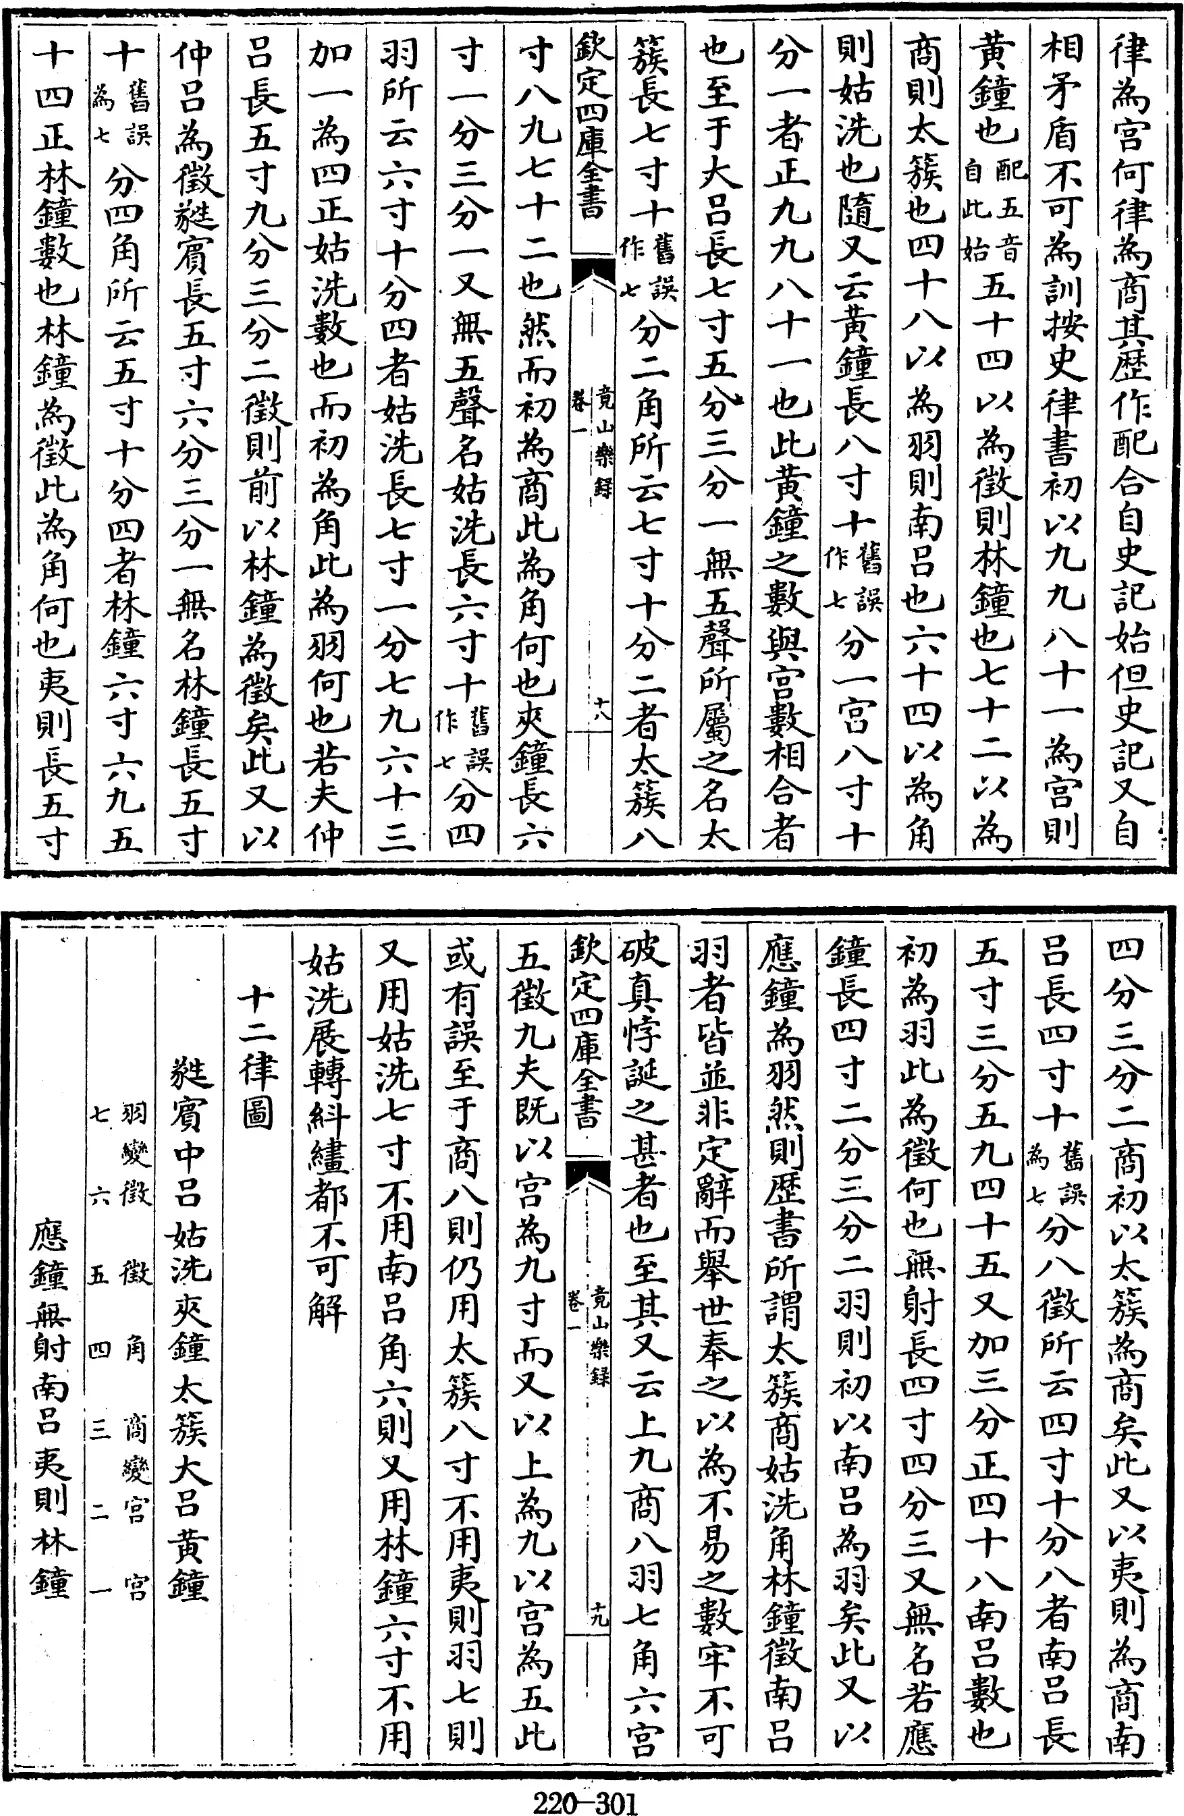 律為宮何律為商其歴作配合自史記始但史記又自
相矛盾不可為訓按史律書初以九九八十一為宮則
黄鐘也配五音自此始五十四以為徵則林鐘也七十二以為
商則太簇也四十八以為羽則南呂也六十四以為角
則姑洗也隨又云黄鐘長八寸十舊誤作七分一宮八寸十
分一者正九九八十一也此黄鐘之數與宮數相合者
也至于大呂長七寸五分三分一無五聲所屬之名太
簇長七寸十舊誤作七分二角所云七寸十分二者太簇八
欽定四庫全書
竟山樂録
卷一
十八
寸八九七十二也然而初為商此為角何也夾鐘長六
寸一分三分一又無五聲名姑洗長六寸十舊誤作七分四
羽所云六寸十分四者姑洗長七寸一分七九六十三
加一為四正姑洗數也而初為角此為羽何也若夫仲
呂長五寸九分三分二徵則前以林鐘為徵矣此又以
仲呂為徵蕤賓長五寸六分三分一無名林鐘長五寸
十舊誤為七分四角所云五寸十分四者林鐘六寸六九五
十四正林鐘數也林鐘為徵此為角何也夷則長五寸
四分三分二商初以太簇為商矣此又以夷則為商南
呂長四寸十舊誤為七分八徵所云四寸十分八者南呂長
五寸三分五九四十五又加三分正四十八南呂數也
初為羽此為徵何也無射長四寸四分三又無名若應
鐘長四寸二分三分二羽則初以南呂為羽矣此又以
應鐘為羽然則歴書所謂太簇商姑洗角林鐘徵南呂
羽者皆並非定辭而舉世奉之以為不易之數牢不可
破真悖誕之甚者也至其又云上九商八羽七角六宮
欽定四庫全書
竟山樂録
卷一
十九
五徵九夫既以宮為九寸而又以上為九以宮為五此
或有誤至于商八則仍用太簇八寸不用夷則羽七則
又用姑洗七寸不用南呂角六則又用林鐘六寸不用
姑洗展轉紏繣都不可解
十二律圖
蕤賓中呂姑洗夾鐘太簇大呂黄鐘
羽變徵 徵 角 商變宮 宮
七 六 五 四 三 二 一
應鐘無射南呂夷則林鐘
220-301